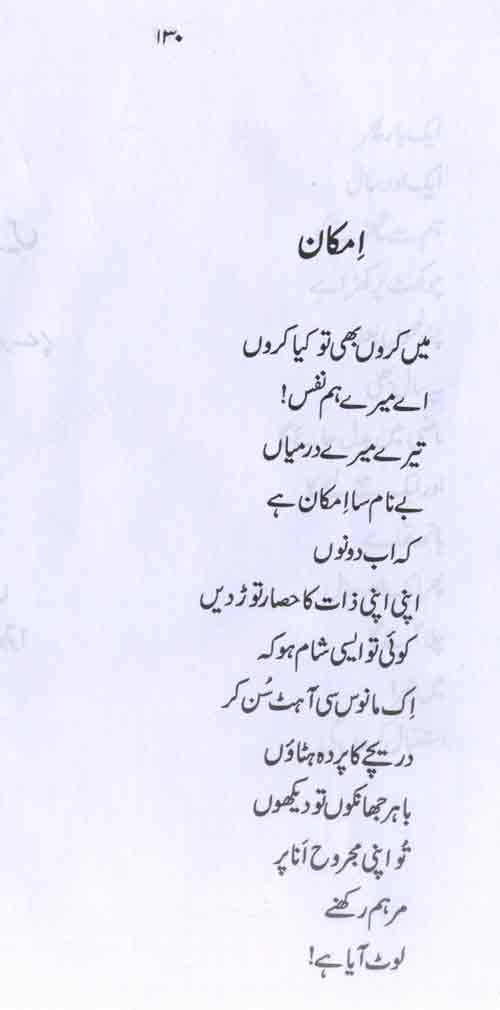 ۱۳۰
اِمکان
میں کروں بھی تو کیا کروں
اے میرے ہم نفس!
تیرے میرے درمیاں
بے نام سا اِمکان ہے
کہ اب دونوں
اپنی اپنی ذات کا حصار توڑ دیں
کوئی تو ایسی شام ہو کہ
اِک مانوس سی آہٹ سُن کر
دریچے کا پردہ ہٹاؤں
باہر جھانکوں تو دیکھوں
تُو اپنی مجروح اَنا پر
مرہم رکھنے
لوٹ آیا ہے!